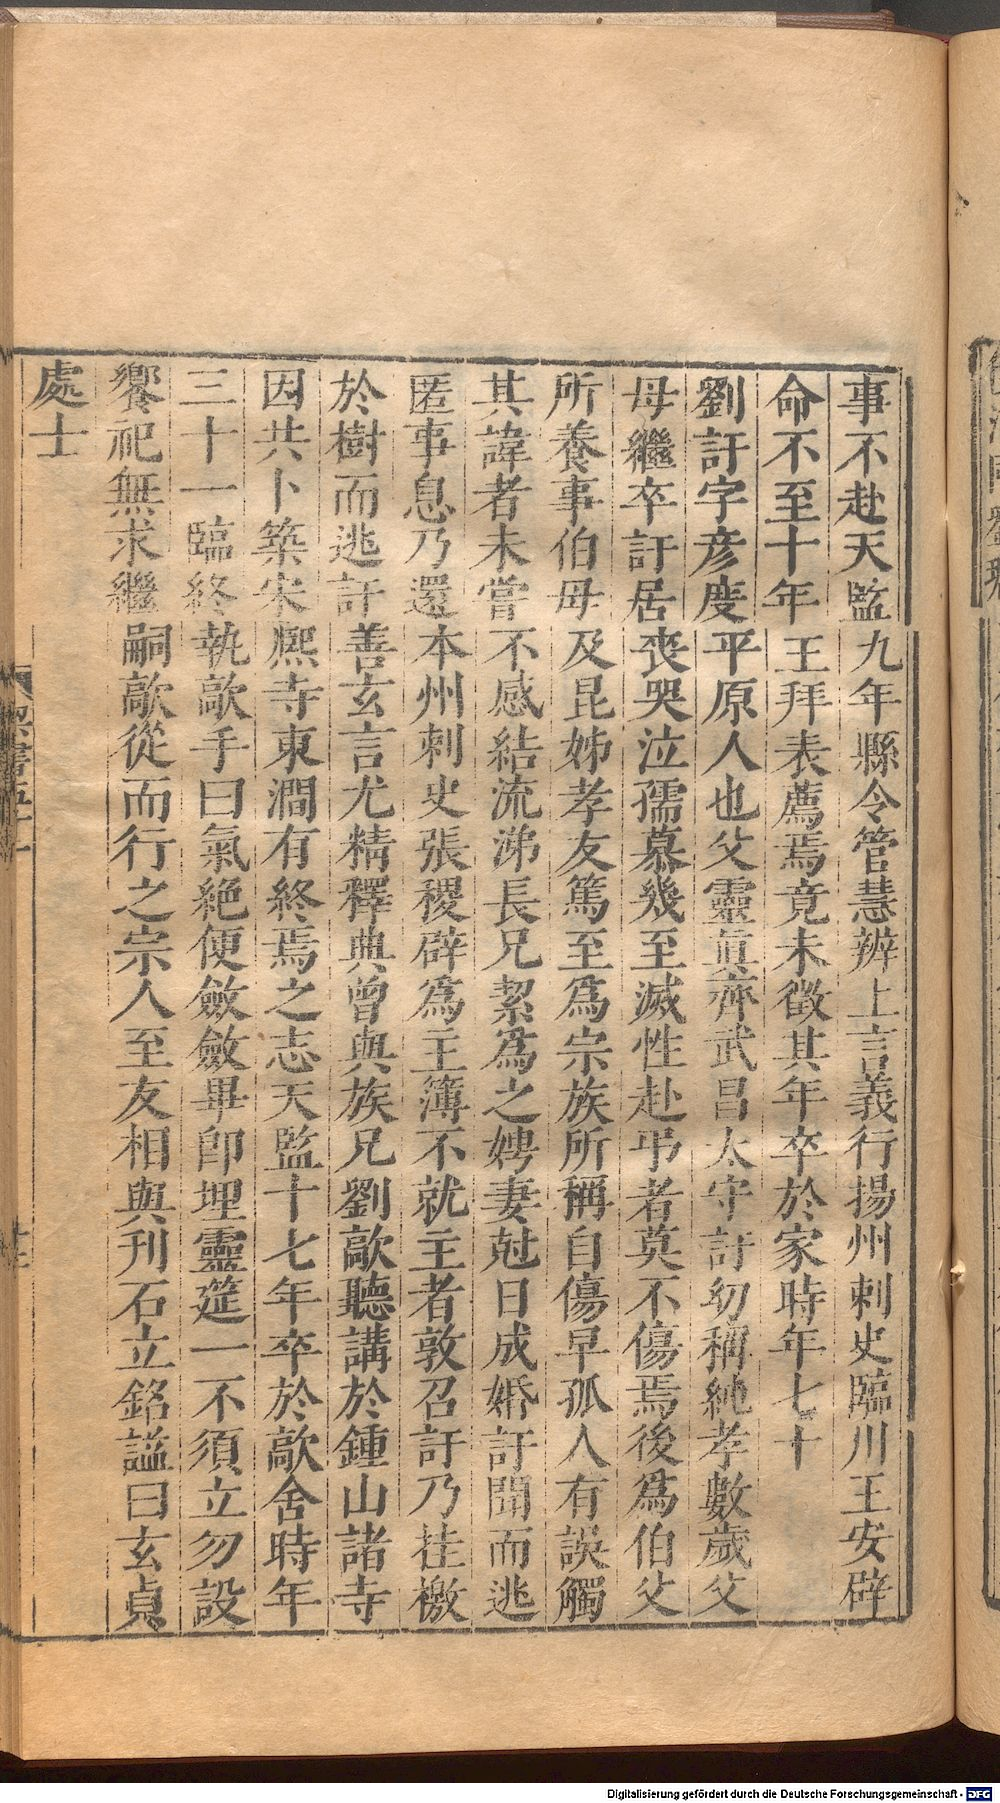 事不赴天監九年縣令管慧辨上言義行揚州刺史臨川王安辟
命不至十年王拜表薦焉竟未徵其年卒於家時年七十
劉訏字彥度平原人也父靈眞齊武昌太守訏幼稱純孝數歲父
母繼卒訏居喪哭泣孺慕幾至滅性赴弔者莫不傷焉後爲伯父
所養事伯母及昆姊孝友篤至爲宗族所稱自傷早孤人有誤觸
其諱者未嘗不感結流涕長兄絜爲之娉妻尅日成婚訏聞而逃
匿事息乃還本州刺史張稷辟爲主簿不就主者敦召訏乃挂檄
於樹而逃訏善玄言尤精釋典曾與族兄劉歊聽講於鍾山諸寺
因共卜築宋熙寺東澗有終焉之志天監十七年卒於歊舍時年
三十一臨終執歊手曰氣絶便斂斂畢卽埋靈筵一不須立勿設
饗祀無求繼嗣歊從而行之宗人至友相與刊石立銘謚曰玄貞
處士
Digitalisierung gefördert durch die Deutsche Forschungsgemeinschaft - DFG